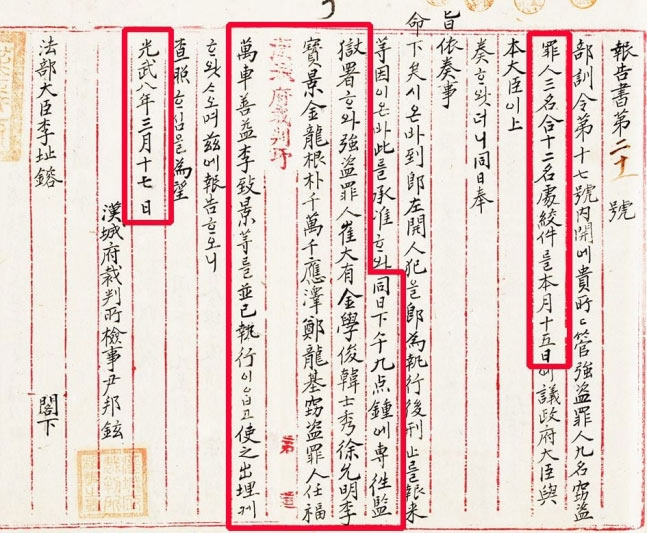 報告書第二十號
部訓令第十七號內開에貴所所管强盜罪人九名竊盜
罪人三名合十二名處絞件을本月十五日에議政府大臣與
本大臣이上
奏ᄒᆞ왓더니同日奉
旨依奏事
命下矣시온바到卽左開人犯을卽為執行後刊止를報来
等因이온바此를承准ᄒᆞ와同日下午九点鍾에専徃監
獄署ᄒᆞ와强盜罪人崔大有金學俊韓士秀徐允明李
寶景金龍根朴千萬千應澤鄭龍基竊盜罪人任福
萬車善益李致景等을並已執行이ᄋᆞᆸ고使之出埋케
ᄒᆞ왓ᄉᆞ오며茲에報告ᄒᆞ오니
査照ᄒᆞ심을為望
光武八年三月十七日
漢城府裁判所檢事尹邦鉉
法部大臣李址鎔 閣下
府裁判所
第 道